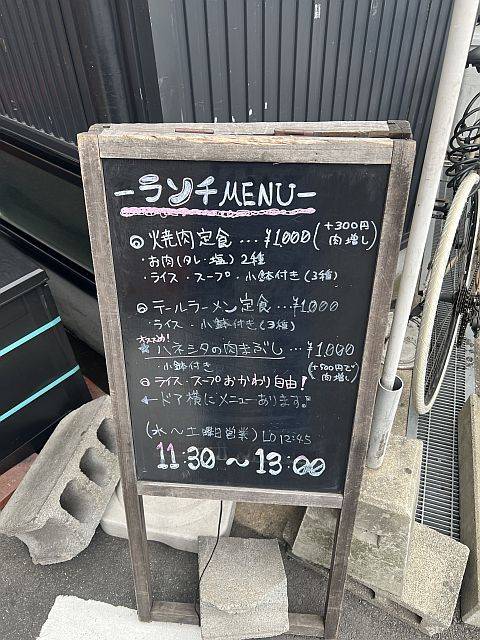 ーランチMENUー
◎焼肉定食…¥1000(+300円肉増し)
・お肉(タレ・塩)2種
・ライス・スープ・小鉢付き(3種)
◎テールラーメン定食…¥1000
・ライス・小鉢付き(3種)
オススメ!
☆ハネシタの肉まぶし…¥1000
・小鉢付き
(+500円で肉増し)
◎ライス・スープおかわり自由!
←ドア横にメニューあります♪
(水〜土曜日営業)LO12:45
11:30〜13:00